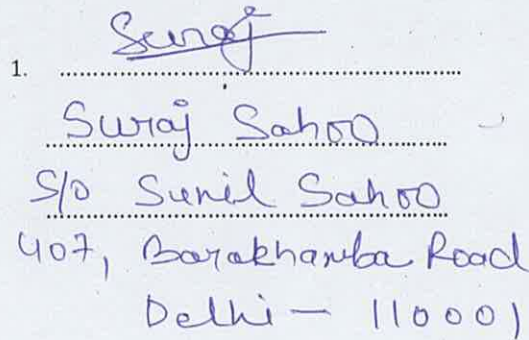 Suraj
1. ................................................
Suraj Sahoo
S/o Sunil Sahoo
407, Barakhamba Road
Delhi - 110001